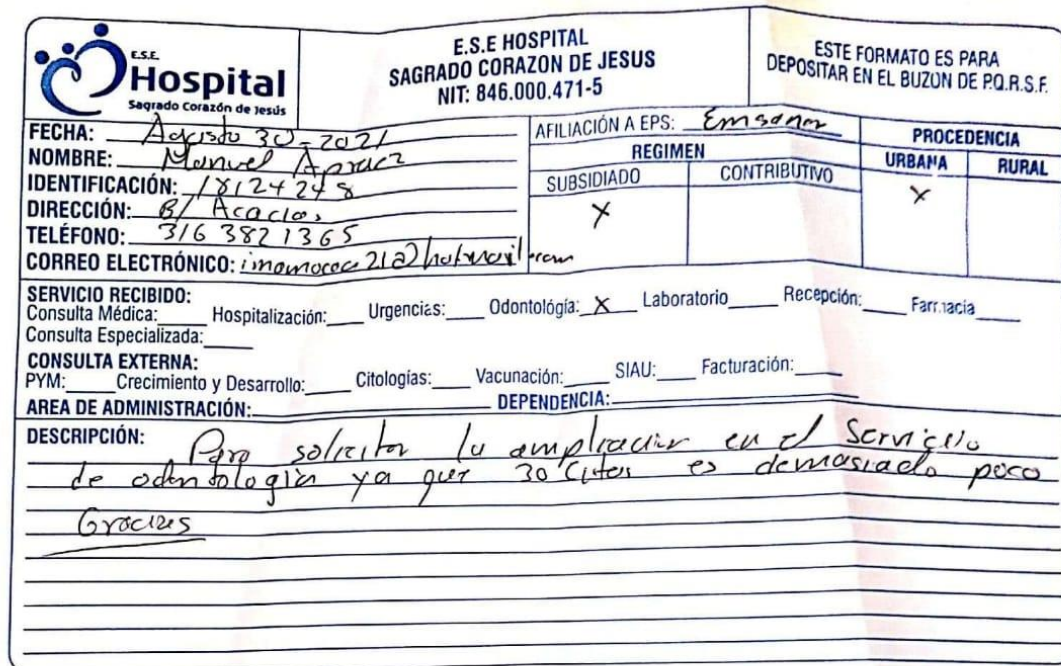 E.S.E.
Hospital
Sagrado Corazón de Jesús
E.S.E HOSPITAL
SAGRADO CORAZON DE JESUS
NIT: 846.000.471-5
ESTE FORMATO ES PARA
DEPOSITAR EN EL BUZON DE P.Q.R.S.F.
FECHA: Agosto 30-2021
NOMBRE: Manuel
IDENTIFICACIÓN: 18124248
DIRECCIÓN: B/ Acacias
TELÉFONO: 316 3821365
CORREO ELECTRÓNICO:
AFILIACIÓN A EPS: Emsanar
REGIMEN
SUBSIDIADO CONTRIBUTIVO
X
PROCEDENCIA
URBANA RURAL
X
SERVICIO RECIBIDO:
Consulta Médica: Hospitalización: Urgencias: Odontológía: X Laboratorio Recepción: Farmacia
Consulta Especializada:
CONSULTA EXTERNA:
PYM: Crecimiento y Desarrollo: Citologías: Vacunación: SIAU: Facturación:
AREA DE ADMINISTRACIÓN: DEPENDENCIA:
DESCRIPCIÓN: Para solicitar la ampliacion en el Servicio
de odontologia ya que 30 Citas es demasiado poco
Gracias